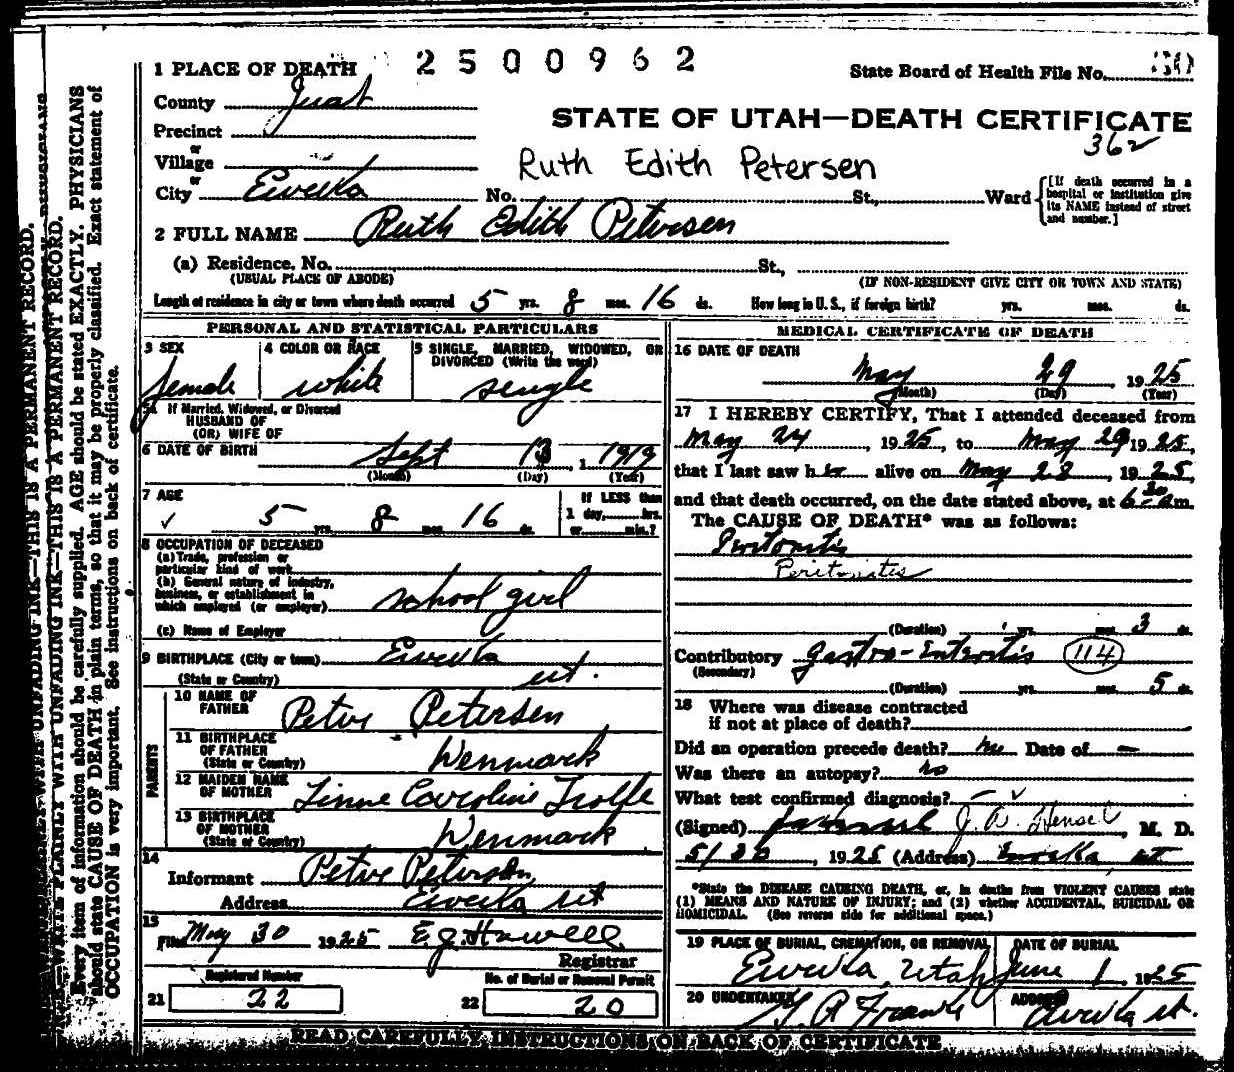 1 PLACE OF DEATH 2500962 State Board of Health File No.
County Juab
STATE OF UTAH—DEATH CERTIFICATE
Precinct
362
or
Village Ruth Edith Petersen
or
City Eureka No. St., Ward [If death occurred in a hospital or institution give its NAME instead of street and number.]
2 FULL NAME Ruth Edith Petersen
(a) Residence. No. St.,
(USUAL PLACE OF ABODE) (IF NON-RESIDENT GIVE CITY OR TOWN AND STATE)
Length of residence in city or town where death occurred 5 yrs. 8 mos. 16 ds. How long in U. S., if foreign birth? yrs. mos. ds.
PERSONAL AND STATISTICAL PARTICULARS
3 SEX 4 COLOR OR RACE 5 SINGLE, MARRIED, WIDOWED, OR DIVORCED (Write the word)
female white single
5a If Married, Widowed, or Divorced
HUSBAND OF
(OR) WIFE OF
6 DATE OF BIRTH Sept 13, 1919
(Month) (Day) (Year)
7 AGE If LESS than
5 yrs. 8 mos. 16 ds. 1 day, hrs. or min.?
8 OCCUPATION OF DECEASED
(a) Trade, profession or
particular kind of work
(b) General nature of industry,
business, or establishment in
which employed (or employer) school girl
(c) Name of Employer
9 BIRTHPLACE (City or town) Eureka
(State or Country) ut.
PARENTS
10 NAME OF FATHER Peter Petersen
11 BIRTHPLACE OF FATHER
(State or Country) Denmark
12 MAIDEN NAME OF MOTHER Caroline
13 BIRTHPLACE OF MOTHER
(State or Country) Denmark
14
Informant Peter Petersen
Address Eureka ut
15
Filed May 30 1925 E.J. Howell
Registrar
Registered Number No. of Burial or Removal Permit
21 22 22 20
MEDICAL CERTIFICATE OF DEATH
16 DATE OF DEATH
May 29, 1925
(Month) (Day) (Year)
17 I HEREBY CERTIFY, That I attended deceased from
May 24 1925, to May 29 1925,
that I last saw her alive on May 28, 1925,
and that death occurred, on the date stated above, at 6 30 a m.
The CAUSE OF DEATH* was as follows:
Peritonitis
Peritonitis
(Duration) yrs. mos. 3 ds.
Contributory Gastro-Enteritis 114
(Secondary)
(Duration) yrs. mos. 5 ds.
18 Where was disease contracted
if not at place of death?
Did an operation precede death? no Date of —
Was there an autopsy? no
What test confirmed diagnosis? —
(Signed) J. A. Hensel, M. D.
5/30, 1925 (Address) Eureka ut
*State the DISEASE CAUSING DEATH, or, in deaths from VIOLENT CAUSES state
(1) MEANS AND NATURE OF INJURY; and (2) whether ACCIDENTAL, SUICIDAL OR
HOMICIDAL. (See reverse side for additional space.)
19 PLACE OF BURIAL, CREMATION, OR REMOVAL DATE OF BURIAL
Eureka, Utah June 1 1925
20 UNDERTAKER ADDRESS
Eureka ut.
READ CAREFULLY INSTRUCTIONS ON BACK OF CERTIFICATE
WRITE PLAINLY WITH UNFADING INK—THIS IS A PERMANENT RECORD.
Every item of information should be carefully supplied. AGE should be stated EXACTLY. PHYSICIANS
should state CAUSE OF DEATH in plain terms, so that it may be properly classified. Exact statement of
OCCUPATION is very important. See instructions on back of certificate.